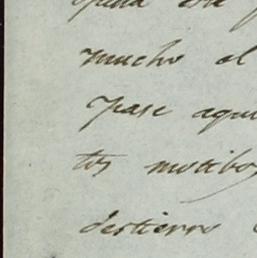 mucho el
pase aqu
tos motibos
destierro